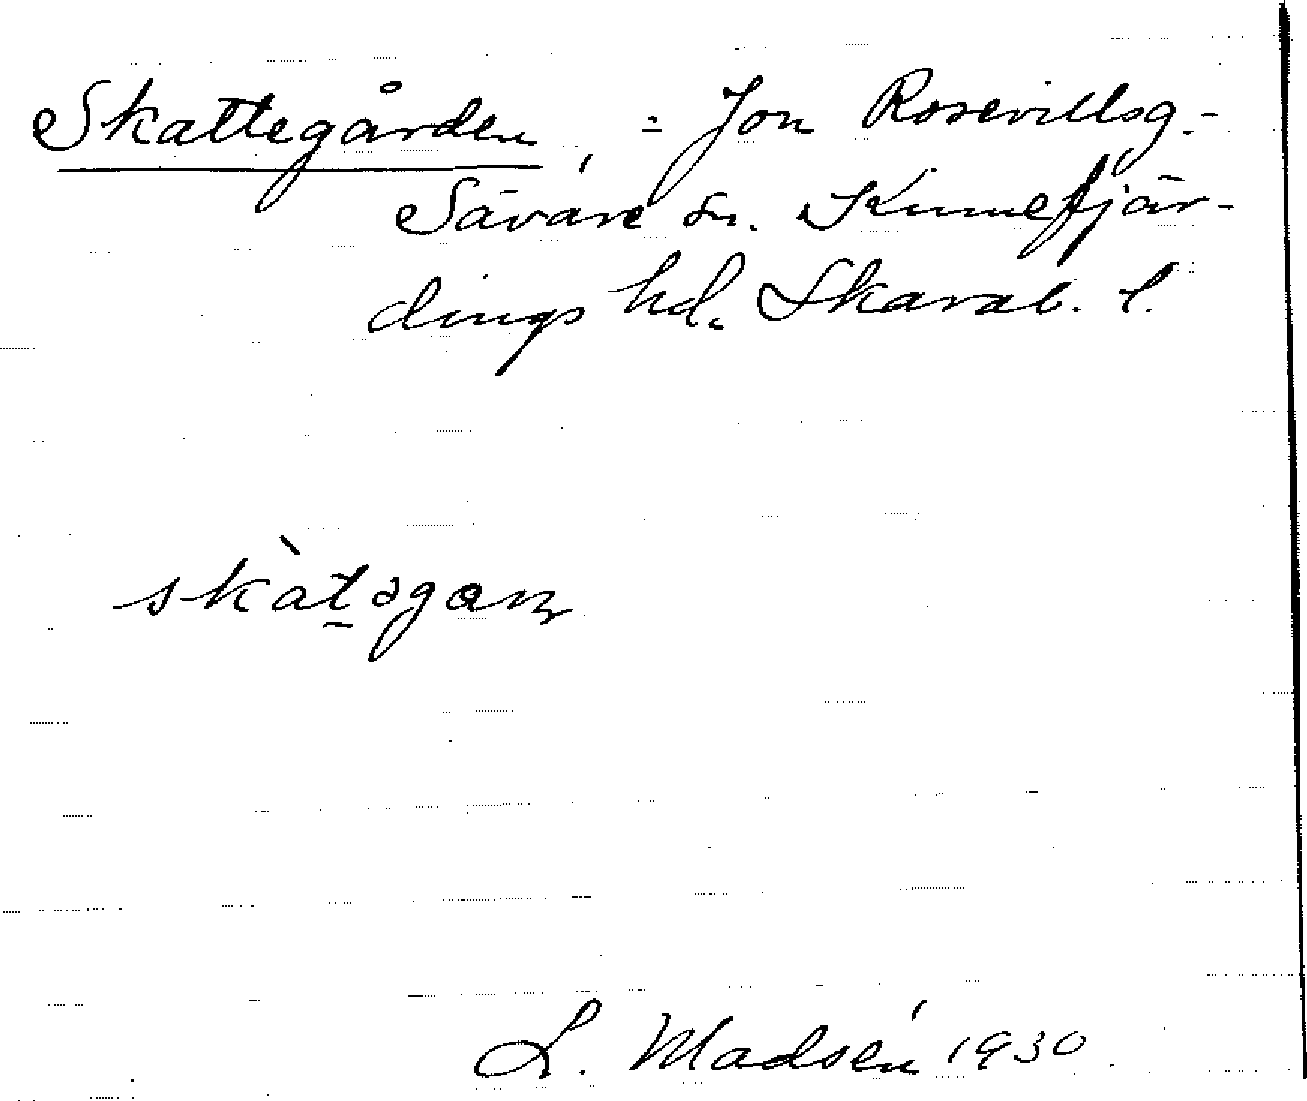 Skattegården, = Jon Rosevillsg.-
Sävare sn. Kinnefjär-
dings hd. Skarab. l.
skàt̲əgan
L. Madsén 1930